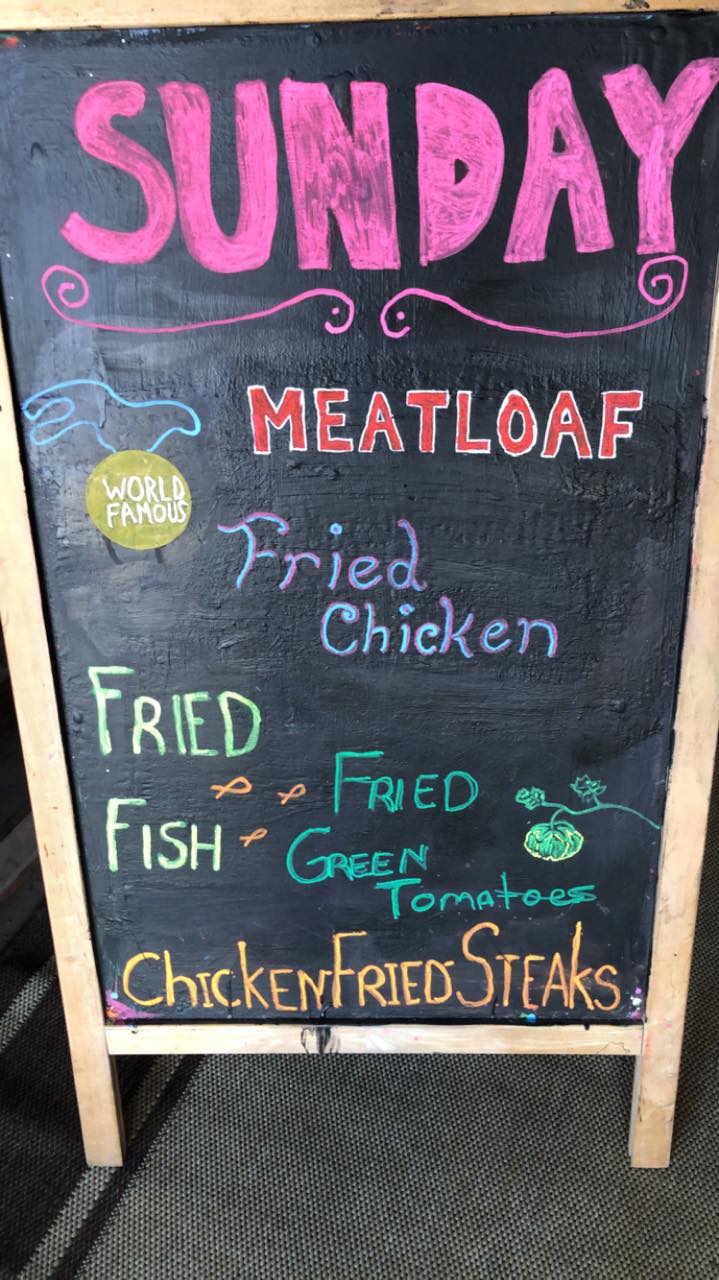 SUNDAY
MEATLOAF
WORLD
FAMOUS
Fried
Chicken
FRIED
FISH
FRIED
GREEN
TOMATOES
CHICKEN FRIED STEAKS